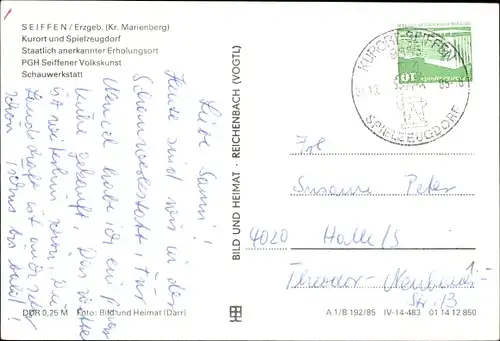 SEIFFEN / Erzgeb. (Kr. Marienberg)
Kurort und Spielzeugdorf
Staatlich anerkannter Erholungsort
PGH Seiffener Volkskunst
Schauwerkstatt
Liebe Sanni!
Heute sind wir in der
Schauwerkstatt, für
habe ich ein
gekauft. Das Wetter
ist weiterhin schön, die
Landschaft ist auch sehr
schön. Tschüs bis bald!
BILD UND HEIMAT · REICHENBACH (VOGTL)
KURORT SEIFFEN
SPIELZEUGDORF
10
Susanne Peter
4020 Halle/S
Theodor-Neubauer-
Str. 13
1.-
DDR 0,25 M Foto: Bild und Heimat (Darr)
A 1/B 192/85 IV-14-483 01 14 12 850